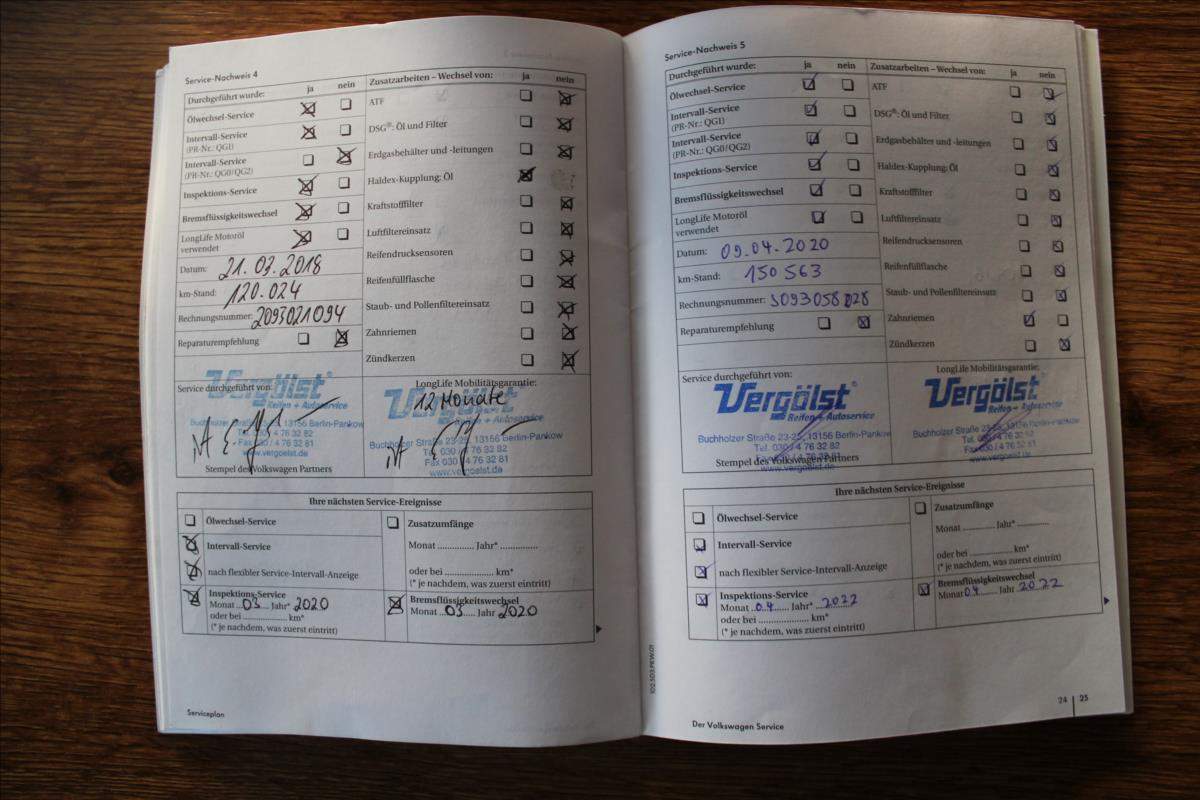 Service-Nachweis 4
Durchgeführt wurde: ja nein
Ölwechsel-Service
Intervall-Service
(PR-Nr.: QG1)
Intervall-Service
(PR-Nr.: QG0/QG2)
Inspektions-Service
Bremsflüssigkeitswechsel
LongLife Motoröl
verwendet
Datum: 21.03.2018
km-Stand: 120.024
Rechnungsnummer: 2093021094
Reparaturempfehlung
Zusatzarbeiten – Wechsel von: ja nein
ATF
DSG®: Öl und Filter
Erdgasbehälter und -leitungen
Haldex-Kupplung: Öl
Kraftstofffilter
Luftfiltereinsatz
Reifendrucksensoren
Reifenfüllflasche
Staub- und Pollenfiltereinsatz
Zahnriemen
Zündkerzen
Service durchgeführt von:
Vergölst
Reifen + Autoservice
Buchholzer Straße 23-25, 13156 Berlin-Pankow
Fax 030 / 4 76 32 81
www.vergoelst.de
Stempel des Volkswagen Partners
LongLife Mobilitätsgarantie:
12 Monate
Vergölst
Buchholzer Straße 23-25, 13156 Berlin-Pankow
Tel. 030 / 4 76 32 82
Fax 030 / 4 76 32 81
www.vergoelst.de
Ihre nächsten Service-Ereignisse
Ölwechsel-Service
Intervall-Service
nach flexibler Service-Intervall-Anzeige
Inspektions-Service
Monat 03 Jahr* 2020
oder bei ............ km*
(* je nachdem, was zuerst eintritt)
Zusatzumfänge
Monat ............ Jahr* ............
oder bei ............ km*
(* je nachdem, was zuerst eintritt)
Bremsflüssigkeitswechsel
Monat 03 Jahr 2020
Serviceplan
Service-Nachweis 5
Durchgeführt wurde: ja nein
Ölwechsel-Service
Intervall-Service
(PR-Nr.: QG1)
Intervall-Service
(PR-Nr.: QG0/QG2)
Inspektions-Service
Bremsflüssigkeitswechsel
LongLife Motoröl
verwendet
Datum: 09.04.2020
km-Stand: 150 563
Rechnungsnummer: 3093058028
Reparaturempfehlung
Zusatzarbeiten – Wechsel von: ja nein
ATF
DSG®: Öl und Filter
Erdgasbehälter und -leitungen
Haldex-Kupplung: Öl
Kraftstofffilter
Luftfiltereinsatz
Reifendrucksensoren
Reifenfüllflasche
Staub- und Pollenfiltereinsatz
Zahnriemen
Zündkerzen
Service durchgeführt von:
Vergölst
Reifen + Autoservice
Buchholzer Straße 23-25, 13156 Berlin-Pankow
Tel. 030 / 4 76 32 82
Fax 030 / 4 76 32 81
Stempel des Volkswagen Partners
www.vergoelst.de
LongLife Mobilitätsgarantie:
Vergölst
Reifen + Autoservice
Buchholzer Straße 23-25, 13156 Berlin-Pankow
Tel. 030 / 4 76 32 82
Fax 030 / 4 76 32 81
www.vergoelst.de
Ihre nächsten Service-Ereignisse
Ölwechsel-Service
Intervall-Service
nach flexibler Service-Intervall-Anzeige
Inspektions-Service
Monat 04 Jahr* 2022
oder bei ............ km*
(* je nachdem, was zuerst eintritt)
Zusatzumfänge
Monat ............ Jahr* ............
oder bei ............ km*
(* je nachdem, was zuerst eintritt)
Bremsflüssigkeitswechsel
Monat 04 Jahr 2022
Der Volkswagen Service
24 | 25